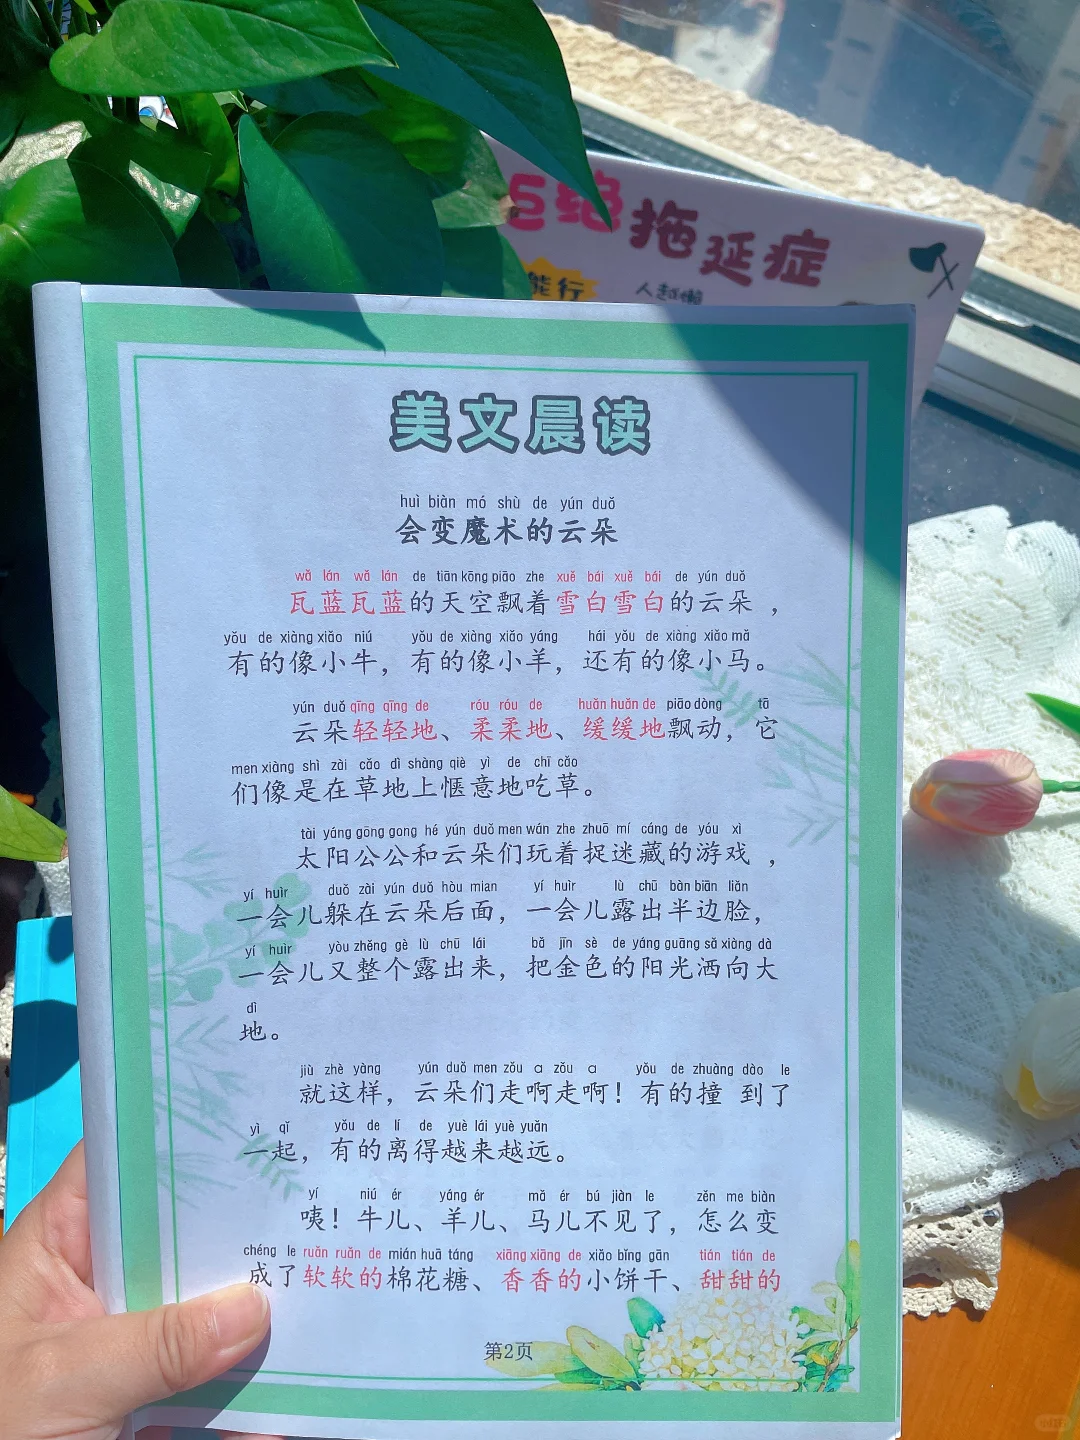 拒绝拖延症
能行
人越懒
美文晨读
huì biàn mó shù de yún duǒ
会变魔术的云朵
wǎ lán wǎ lán de tiān kōng piāo zhe xuě bái xuě bái de yún duǒ
瓦蓝瓦蓝的天空飘着雪白雪白的云朵，
yǒu de xiàng xiǎo niú yǒu de xiàng xiǎo yáng hái yǒu de xiàng xiǎo mǎ
有的像小牛，有的像小羊，还有的像小马。
yún duǒ qīng qīng de róu róu de huǎn huǎn de piāo dòng tā
云朵轻轻地、柔柔地、缓缓地飘动，它
men xiàng shì zài cǎo dì shàng qiè yì de chī cǎo
们像是在草地上惬意地吃草。
tài yáng gōng gong hé yún duǒ men wán zhe zhuō mí cáng de yóu xì
太阳公公和云朵们玩着捉迷藏的游戏，
yí huìr duǒ zài yún duǒ hòu mian yí huìr lù chū bàn biān liǎn
一会儿躲在云朵后面，一会儿露出半边脸，
yí huìr yòu zhěng gè lù chū lái bǎ jīn sè de yáng guāng sǎ xiàng dà
一会儿又整个露出来，把金色的阳光洒向大
dì
地。
jiù zhè yàng yún duǒ men zǒu a zǒu a yǒu de zhuàng dào le
就这样，云朵们走啊走啊！有的撞 到了
yì qǐ yǒu de lí de yuè lái yuè yuǎn
一起，有的离得越来越远。
yí niú ér yáng ér mǎ ér bú jiàn le zěn me biàn
咦！牛儿、羊儿、马儿不见了，怎么变
chéng le ruǎn ruǎn de mián huā táng xiāng xiāng de xiǎo bǐng gān tián tián de
成了软软的棉花糖、香香的小饼干、甜甜的
第2页